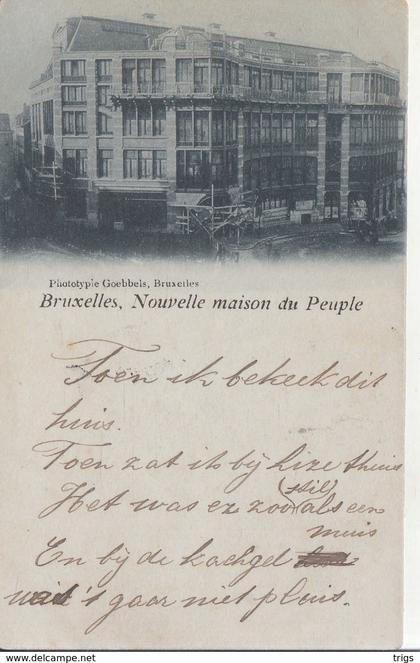 Phototypie Goebbels, Bruxelles
Bruxelles, Nouvelle maison du Peuple
Toen ik bekeek dit
huis.
Toen zat ik bij Lize thuis
Het was er zoo (stil) als een
muis
En bij de kachel
was 't gaar niet pluis.
www.delcampe.net
trigs